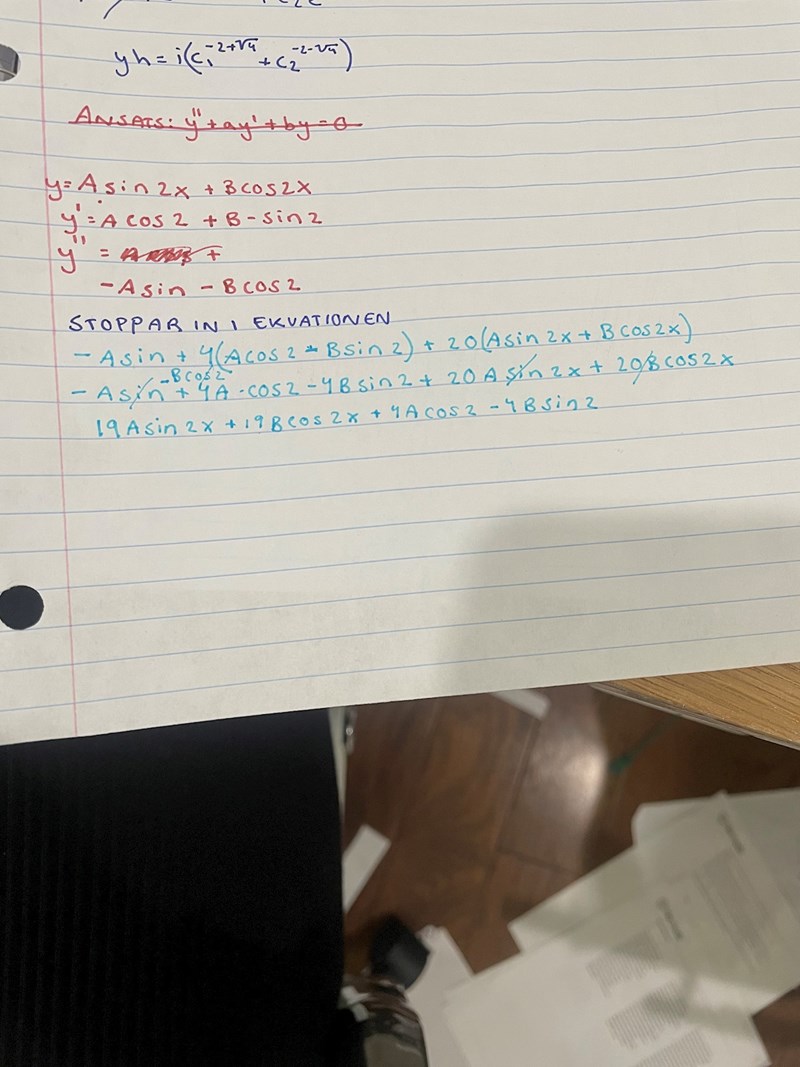 yh = i(c₁^-2+√4 + c₂^-2-√4)
ANSATS: y'' + ay' + by = 0
y = A sin 2x + B cos 2x
y' = A cos 2 + B - sin 2
y'' = +
- A sin - B cos 2
STOPPAR IN I EKVATIONEN
- A sin + 4(A cos 2 - B sin 2) + 20(A sin 2x + B cos 2x)
- B cos 2
- A sin + 4A · cos 2 - 4B sin 2 + 20 A sin 2x + 20 B cos 2x
19 A sin 2x + 19 B cos 2x + 4 A cos 2 - 4 B sin 2